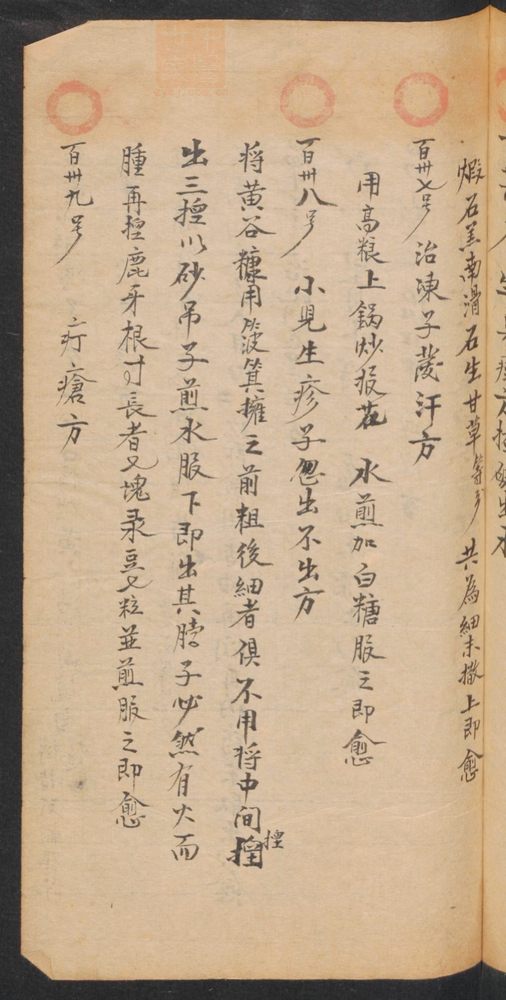 煅石羔南滑石生甘草等分 共為細末撒上即愈
百卅七号 治凍子發汗方
用高粮上鍋炒报花 水煎加白糖服之即愈
百卅八号 小見生疹子忽出不出方
將黄谷糠用簸箕擁之前粗後細者俱不用将中間揑
揑
出三揑以砂吊子煎水服下即出其脖子必然有火而
腫再揑鹿牙根寸長者七塊录豆七粒並煎服之即愈
百卅九号 疔瘡方